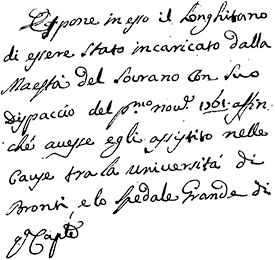 Espone in esso il Longhitano
di essere stato incaricato dalla
Maestà del Sovrano con suo
dispaccio del p.mo nov.e 1761 affin,
ché avesse egli assistito nelle
cause tra la università di
Bronti, e lo spedale Grande di
q.a Cap.le